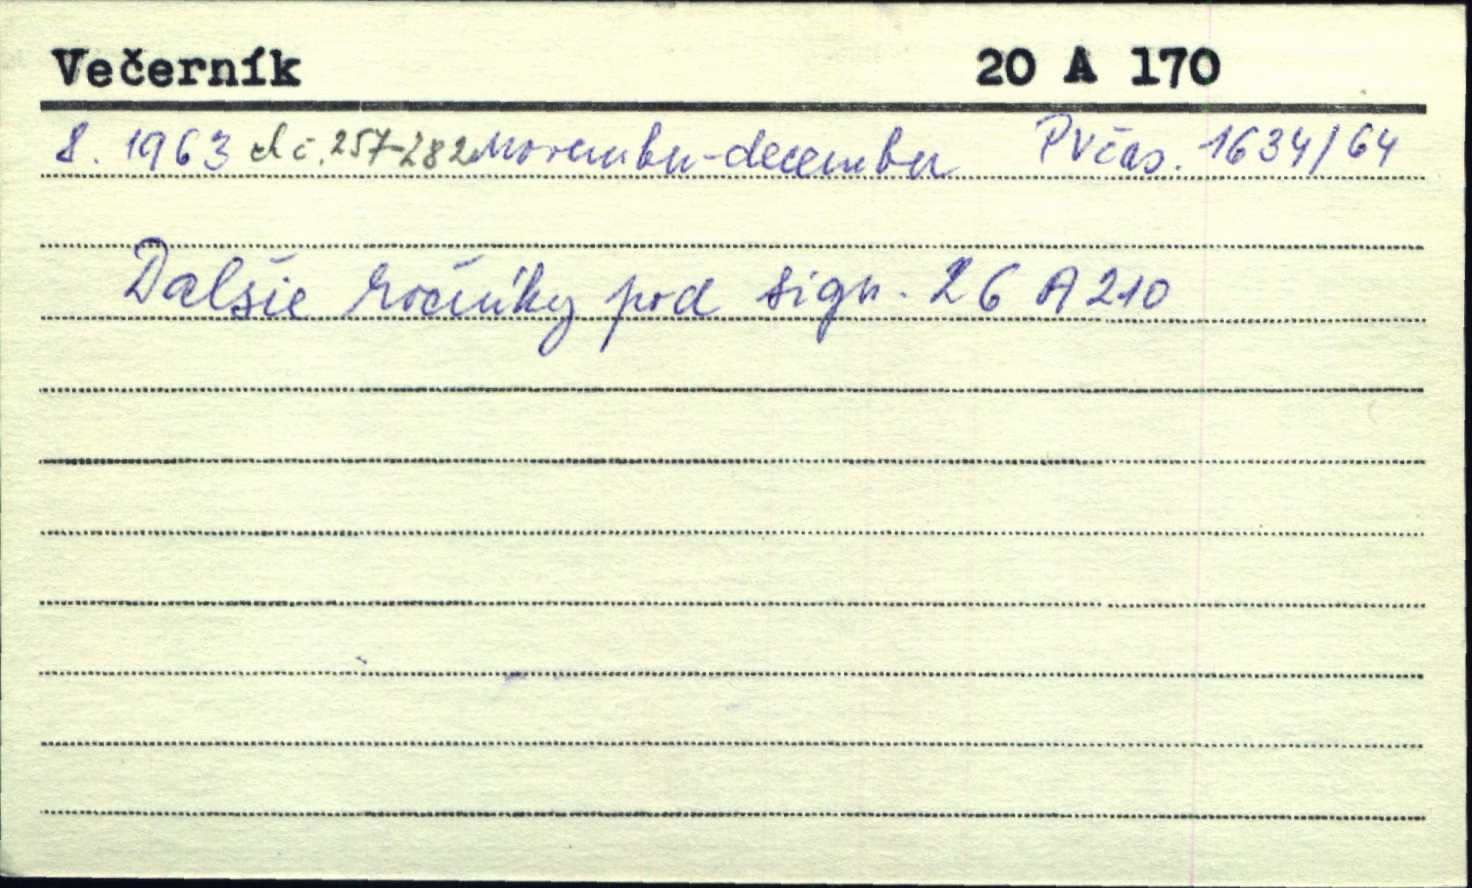 Večerník 20 A 170
8. 1963 č. 257-282 november-december PVčas. 1634/64
Dalšie ročníky pod sign. 26 A 210